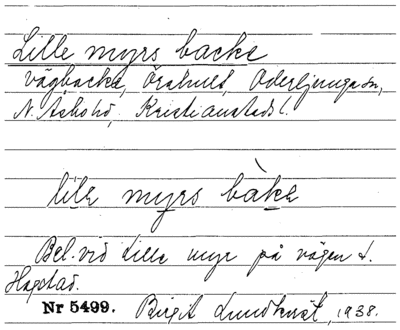 Lille myrs backe
vägbacke, Örahult, Oderljunga sn,
N. Åsbo hd, Kristianstads l.
lile myrs bàke
Bel. vid Lille myr på vägen t.
Hagstad.
Nr 5499. Birgit Lundkvist, 1938.